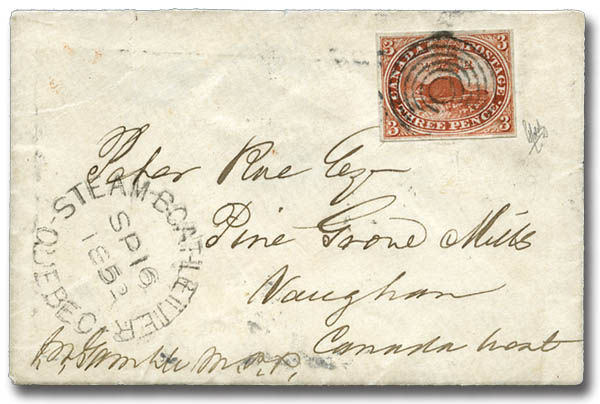 3 CANADA POSTAGE 3
3 THREE PENCE. 3
STEAM-BOAT-LETTER
SP 16
1852
QUEBEC
Peter Rue Esq
Pine Grove Mills
Vaughan
Canada West
M.P.P.